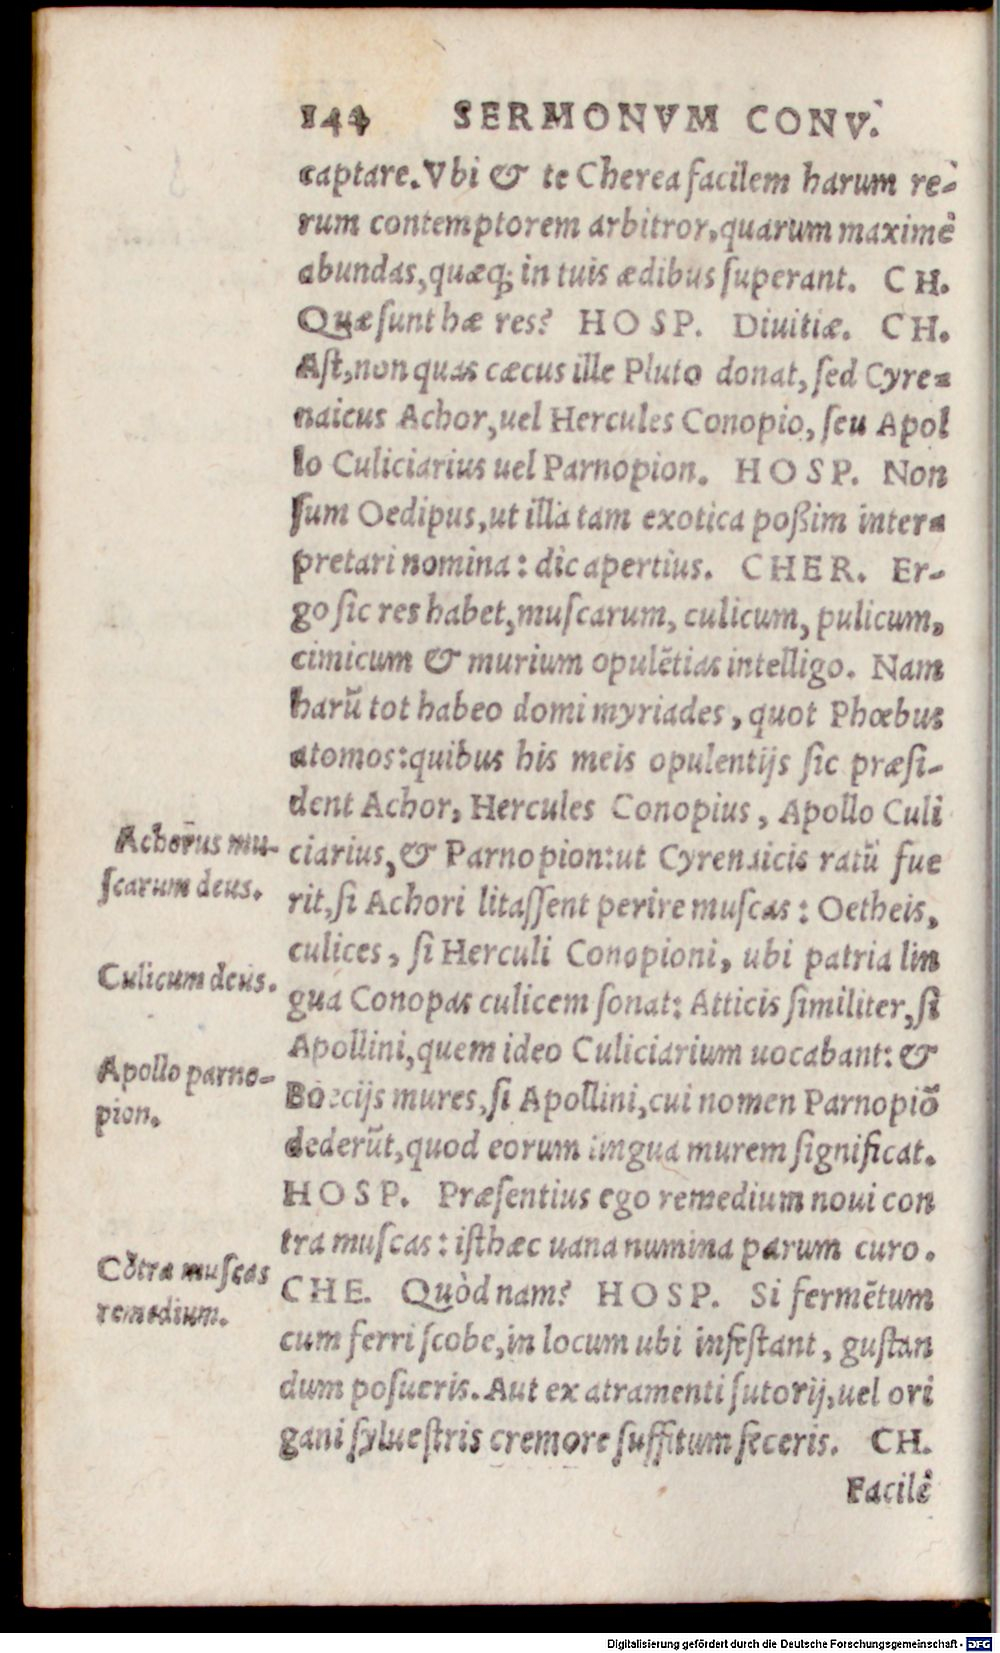 144 SERMONVM CONV.
captare. Vbi & te Cherea facilem harum re-
rum contemptorem arbitror, quarum maximè
abundas, quæq; in tuis ædibus ſuperant. CH.
Quæ ſunt hæ res? HOSP. Diuitiæ. CH.
Aſt, non quas cæcus ille Pluto donat, ſed Cyre-
naicus Achor, uel Hercules Conopio, ſeu Apol
lo Culiciarius uel Parnopion. HOSP. Non
ſum Oedipus, ut illa tam exotica poßim inter-
pretari nomina: dic apertius. CHER. Er-
go ſic res habet, muſcarum, culicum, pulicum,
cimicum & murium opulẽtias intelligo. Nam
harũ tot habeo domi myriades, quot Phœbus
atomos: quibus his meis opulentijs ſic præſi-
dent Achor, Hercules Conopius, Apollo Culi
ciarius, & Parnopion: ut Cyrenaicis ratũ fue
rit, ſi Achori litaſſent perire muſcas: Oetheis,
culices, ſi Herculi Conopioni, ubi patria lin
gua Conopas culicem ſonat: Atticis ſimiliter, ſi
Apollini, quem ideo Culiciarium uocabant: &
Boecijs mures, ſi Apollini, cui nomen Parnopiõ
dederũt, quod eorum lingua murem ſignificat.
HOSP. Præſentius ego remedium noui con
tra muſcas: iſthæc uana numina parum curo.
CHE. Quòd nam? HOSP. Si fermẽtum
cum ferri ſcobe, in locum ubi infeſtant, guſtan
dum poſueris. Aut ex atramenti ſutorij, uel ori
gani ſylueſtris cremore ſuffitum feceris. CH.
Facilè
Achorus mu-
ſcarum deus.
Culicum deus.
Apollo parno-
pion.
Cõtra muſcas
remedium.
Digitalisierung gefördert durch die Deutsche Forschungsgemeinschaft - DFG